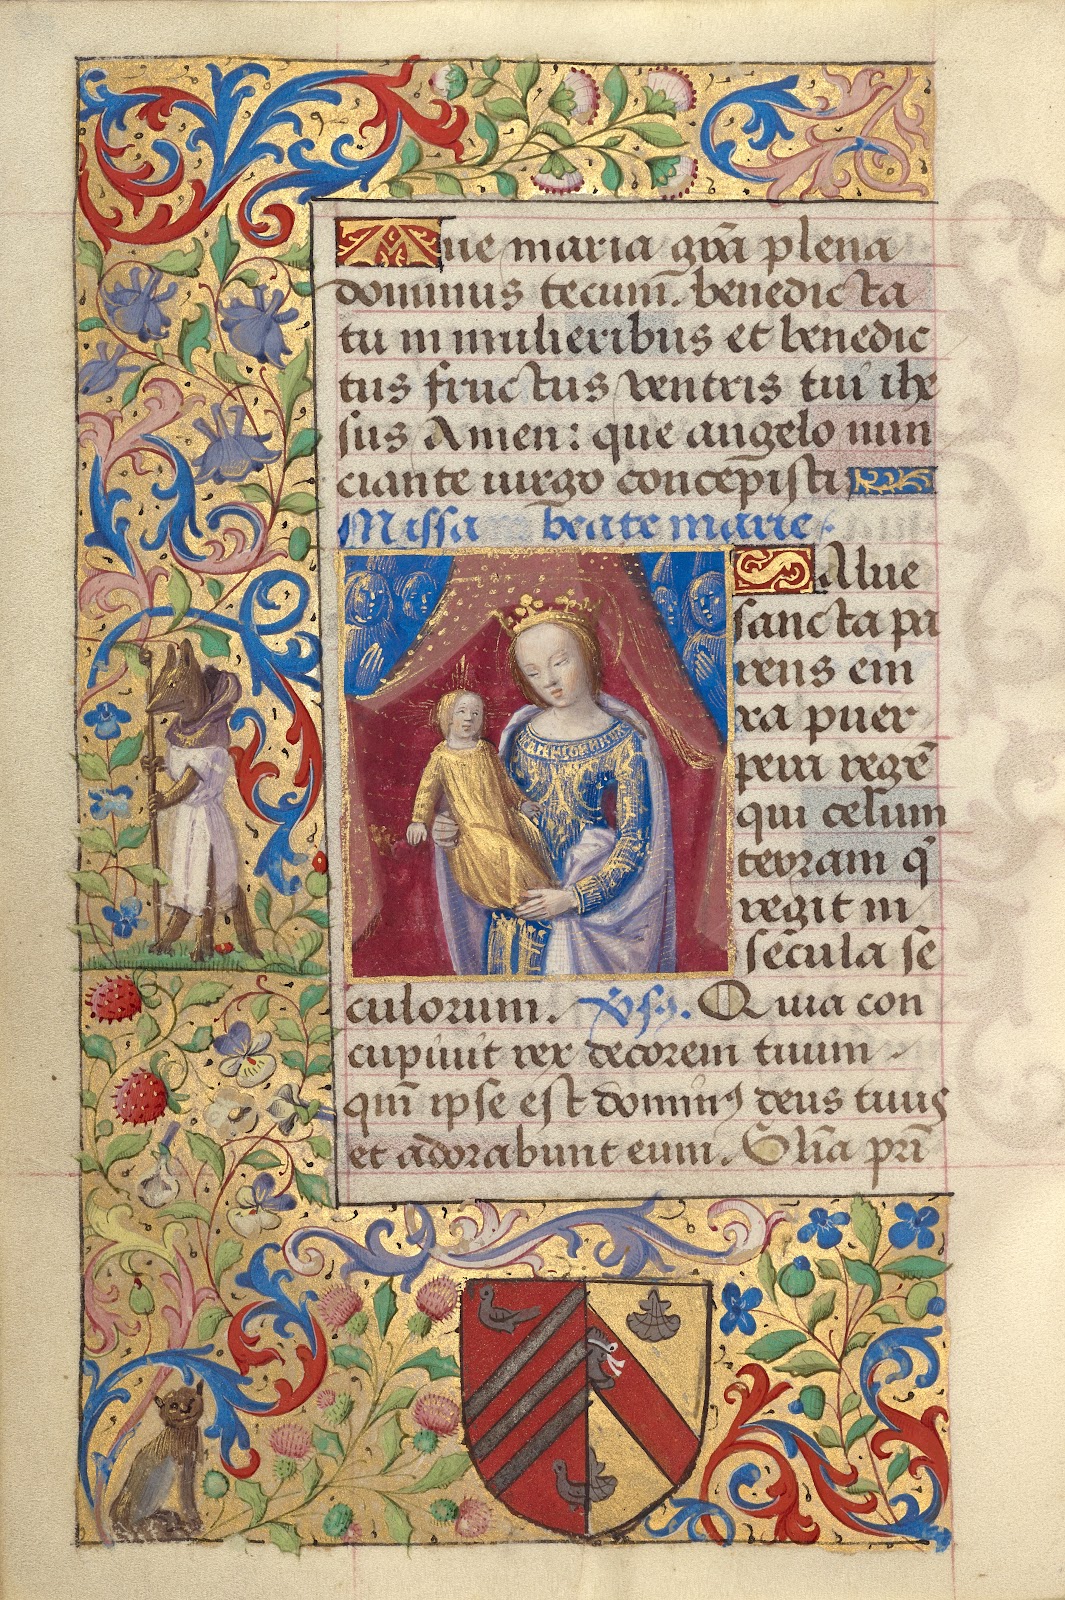 Aue maria grā plena
dominus tecum. benedicta
tu in mulieribus et benedic
tus fructus ventris tui ihe
sus Amen: que angelo nun
ciante uirgo concepisti
Missa beate marie.
Salue
sancta pa
rens eni
xa puer
pera regē
qui celum
terram q̄
regit in
secula se
culorum. v̄s. Quia con
cupiuit rex decorem tuum
qm̄ ipse est dominꝰ deus tuus
et adorabunt eum. Glīa prī